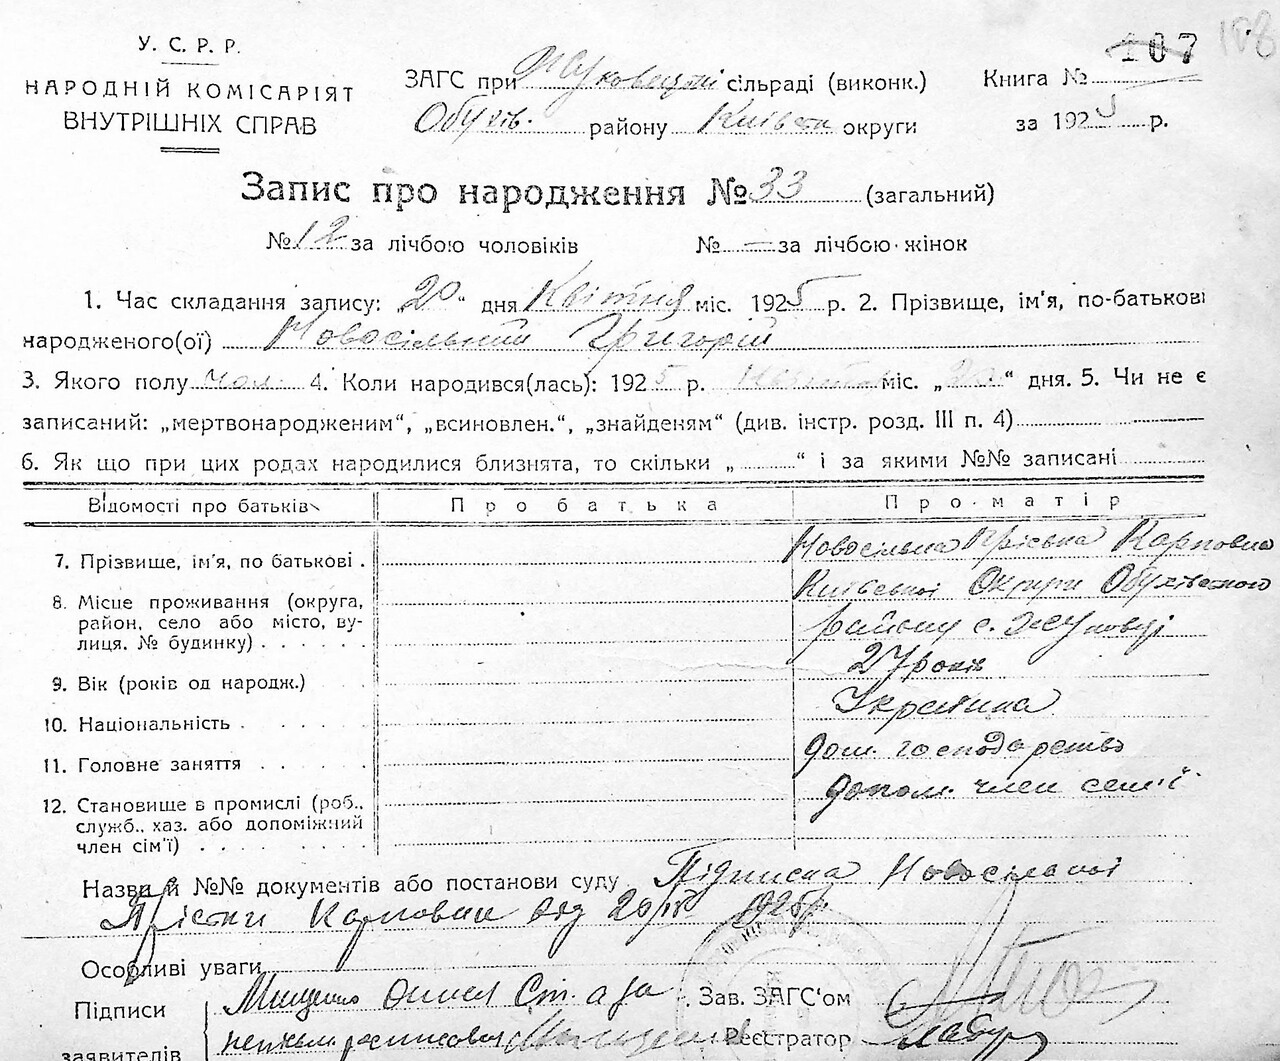 У. С. Р. Р.
НАРОДНІЙ КОМІСАРІЯТ
ВНУТРІШНІХ СПРАВ
107
108
ЗАГС при Жуковецькій сільраді (виконк.)
Обухів. району Київськ округи
Книга №
за 1925 р.
Запис про народження № 33 (загальний)
№ 12 за лічбою чоловіків № — за лічбою жінок
1. Час складання запису: „20“ дня Квітня міс. 1925 р. 2. Прізвище, ім'я, по-батькові
народженого(ої) Новосільний Григорій
3. Якого полу чол. 4. Коли народився(лась): 1925 р. Квітня міс. „20“ дня. 5. Чи не є
записаний: „мертвонародженим“, „всиновлен.“, „знайденям“ (див. інстр. розд. III п. 4)
6. Як що при цих родах народилися близнята, то скільки „ “ і за якими №№ записані
Відомості про батьків Про батька Про матір
7. Прізвище, ім'я, по батькові . Новосільна Карповна
8. Місце проживання (округа, Київської Округи Обухівського
район, село або місто, ву- району с. Жуковці
лиця. № будинку)
9. Вік (років од народж.) 27 років
10. Національність Українка
11. Головне заняття дом. господарство
12. Становище в промислі (роб., допом. член семʼї
служб., хаз. або допоміжний
член сім'ї)
Назви й №№ документів або постанови суду Підписка Новосільної
Карповни від 20/IV 1925 р.
Особливі уваги
Підписи
заявителів
Мищенко
Зав. ЗАГС'ом
Реєстратор